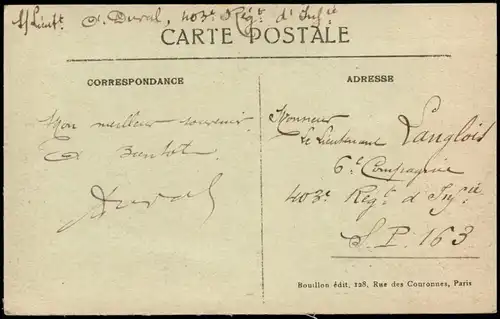 S/Lieut^t A. Duval, 403^e Rég^t d'Inf^ie
CARTE POSTALE
CORRESPONDANCE
Mon meilleur souvenir
A Bientot.
ADuval
ADRESSE
Monsieur
Le Lieutenant Langlois
6^e Compagnie
403^e Rég^t d'Inf^ie
S.P. 163
Bouillon édit, 128, Rue des Couronnes, Paris